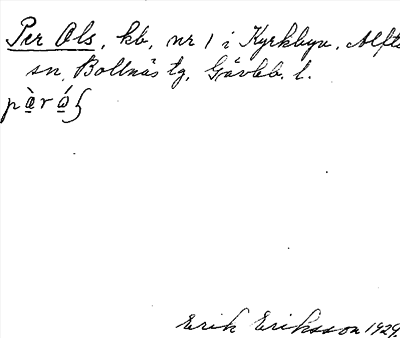 Per Ols, kb, nr 1 i Kyrkbyn, Alfta
sn, Bollnäs tg, Gävleb. l.
Erik Eriksson 1929.